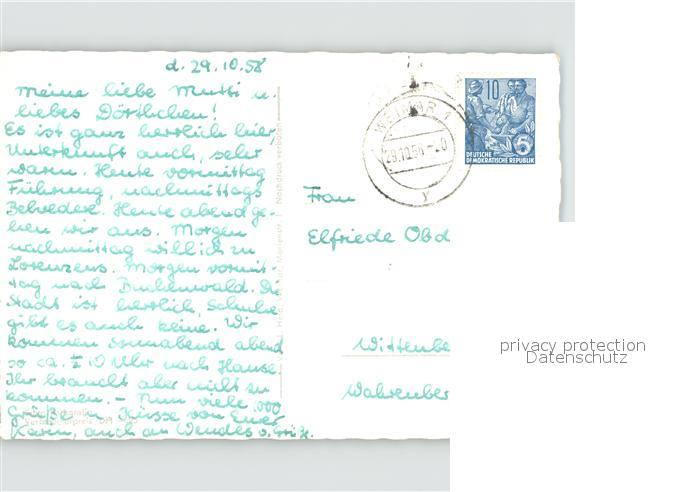 d. 29.10.58
meine liebe Mutti u.
liebes Dörtchen!
Es ist ganz herrlich hier,
Unterkunft auch, sehr
warm. Heute vormittag
Führung, nachmittags
Belvedere. Heute abend ge-
hen wir aus. Morgen
nachmittag will ich zu
Lorenzens. Morgen vormit-
tag nach Buchenwald. Die
Stadt ist herrlich, Schuhe
gibt es auch keine. Wir
kommen Sonnabend abend
so ca. 10 Uhr nach Hause.
Ihr braucht aber nicht zu
kommen. – Nun viele .000
Grüße u. Küsse von Eurer
Karin, auch an Wendes u.
WEIMAR 1
29.10.58
y
10
5
DEUTSCHE
DEMOKRATISCHE REPUBLIK
Nachdruck verboten
Frau
Elfriede Obd
Wittenbe
Wahrenber
privacy protection
Datenschutz